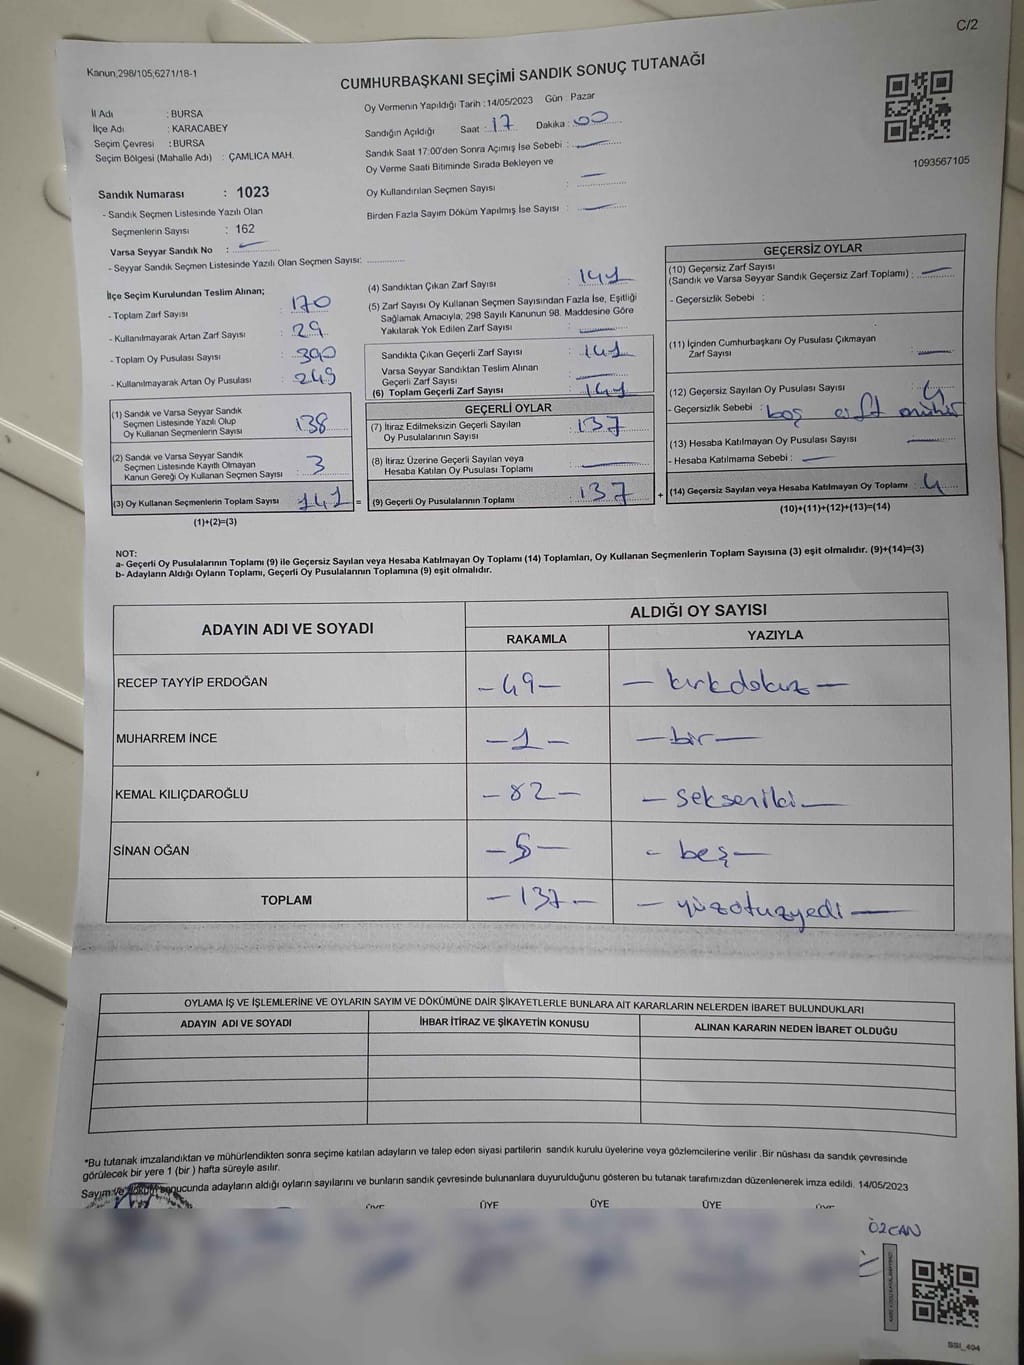 C/2
Kanun;298/105;6271/18-1
CUMHURBAŞKANI SEÇİMİ SANDIK SONUÇ TUTANAĞI
İl Adı : BURSA
İlçe Adı : KARACABEY
Seçim Çevresi : BURSA
Seçim Bölgesi (Mahalle Adı) : ÇAMLICA MAH.
Oy Vermenin Yapıldığı Tarih : 14/05/2023 Gün : Pazar
Sandığın Açıldığı Saat : 17 Dakika : 00
Sandık Saat 17:00'den Sonra Açımış İse Sebebi :
Oy Verme Saati Bitiminde Sırada Bekleyen ve
Oy Kullandırılan Seçmen Sayısı :
Birden Fazla Sayım Döküm Yapılmış İse Sayısı :
1093567105
Sandık Numarası : 1023
- Sandık Seçmen Listesinde Yazılı Olan
Seçmenlerin Sayısı : 162
Varsa Seyyar Sandık No :
- Seyyar Sandık Seçmen Listesinde Yazılı Olan Seçmen Sayısı:
İlçe Seçim Kurulundan Teslim Alınan;
- Toplam Zarf Sayısı : 170
- Kullanılmayarak Artan Zarf Sayısı : 29
- Toplam Oy Pusulası Sayısı : 390
- Kullanılmayarak Artan Oy Pusulası : 249
(1) Sandık ve Varsa Seyyar Sandık
Seçmen Listesinde Yazılı Olup
Oy Kullanan Seçmenlerin Sayısı : 138
(2) Sandık ve Varsa Seyyar Sandık
Seçmen Listesinde Kayıtlı Olmayan
Kanun Gereği Oy Kullanan Seçmen Sayısı : 3
(3) Oy Kullanan Seçmenlerin Toplam Sayısı : 141 =
(1)+(2)=(3)
(4) Sandıktan Çıkan Zarf Sayısı : 141
(5) Zarf Sayısı Oy Kullanan Seçmen Sayısından Fazla İse, Eşitliği
Sağlamak Amacıyla; 298 Sayılı Kanunun 98. Maddesine Göre
Yakılarak Yok Edilen Zarf Sayısı :
Sandıkta Çıkan Geçerli Zarf Sayısı : 141
Varsa Seyyar Sandıktan Teslim Alınan
Geçerli Zarf Sayısı :
(6) Toplam Geçerli Zarf Sayısı : 141
GEÇERLİ OYLAR
(7) İtiraz Edilmeksizin Geçerli Sayılan
Oy Pusulalarının Sayısı : 137
(8) İtiraz Üzerine Geçerli Sayılan veya
Hesaba Katılan Oy Pusulası Toplamı :
(9) Geçerli Oy Pusulalarının Toplamı : 137 +
GEÇERSİZ OYLAR
(10) Geçersiz Zarf Sayısı
(Sandık ve Varsa Seyyar Sandık Geçersiz Zarf Toplamı) :
- Geçersizlik Sebebi :
(11) İçinden Cumhurbaşkanı Oy Pusulası Çıkmayan
Zarf Sayısı :
(12) Geçersiz Sayılan Oy Pusulası Sayısı : 4
- Geçersizlik Sebebi : boş çift mühür
(13) Hesaba Katılmayan Oy Pusulası Sayısı :
- Hesaba Katılmama Sebebi :
(14) Geçersiz Sayılan veya Hesaba Katılmayan Oy Toplamı : 4
(10)+(11)+(12)+(13)=(14)
NOT:
a- Geçerli Oy Pusulalarının Toplamı (9) ile Geçersiz Sayılan veya Hesaba Katılmayan Oy Toplamı (14) Toplamları, Oy Kullanan Seçmenlerin Toplam Sayısına (3) eşit olmalıdır. (9)+(14)=(3)
b- Adayların Aldığı Oyların Toplamı, Geçerli Oy Pusulalarının Toplamına (9) eşit olmalıdır.
ADAYIN ADI VE SOYADI ALDIĞI OY SAYISI
RAKAMLA YAZIYLA
RECEP TAYYİP ERDOĞAN - 49 - - kırkdokuz -
MUHARREM İNCE - 1 - - bir -
KEMAL KILIÇDAROĞLU - 82 - - sekseniki -
SİNAN OĞAN - 5 - - beş -
TOPLAM - 137 - - yüzotuzyedi -
OYLAMA İŞ VE İŞLEMLERİNE VE OYLARIN SAYIM VE DÖKÜMÜNE DAİR ŞİKAYETLERLE BUNLARA AİT KARARLARIN NELERDEN İBARET BULUNDUKLARI
ADAYIN ADI VE SOYADI İHBAR İTİRAZ VE ŞİKAYETİN KONUSU ALINAN KARARIN NEDEN İBARET OLDUĞU
*Bu tutanak imzalandıktan ve mühürlendikten sonra seçime katılan adayların ve talep eden siyasi partilerin sandık kurulu üyelerine veya gözlemcilerine verilir .Bir nüshası da sandık çevresinde
görülecek bir yere 1 (bir ) hafta süreyle asılır.
Sayım ve döküm sonucunda adayların aldığı oyların sayılarını ve bunların sandık çevresinde bulunanlara duyurulduğunu gösteren bu tutanak tarafımızdan düzenlenerek imza edildi. 14/05/2023
ÜYE ÜYE ÜYE ÜYE ÜYE
ÖZCAN
SSI_404